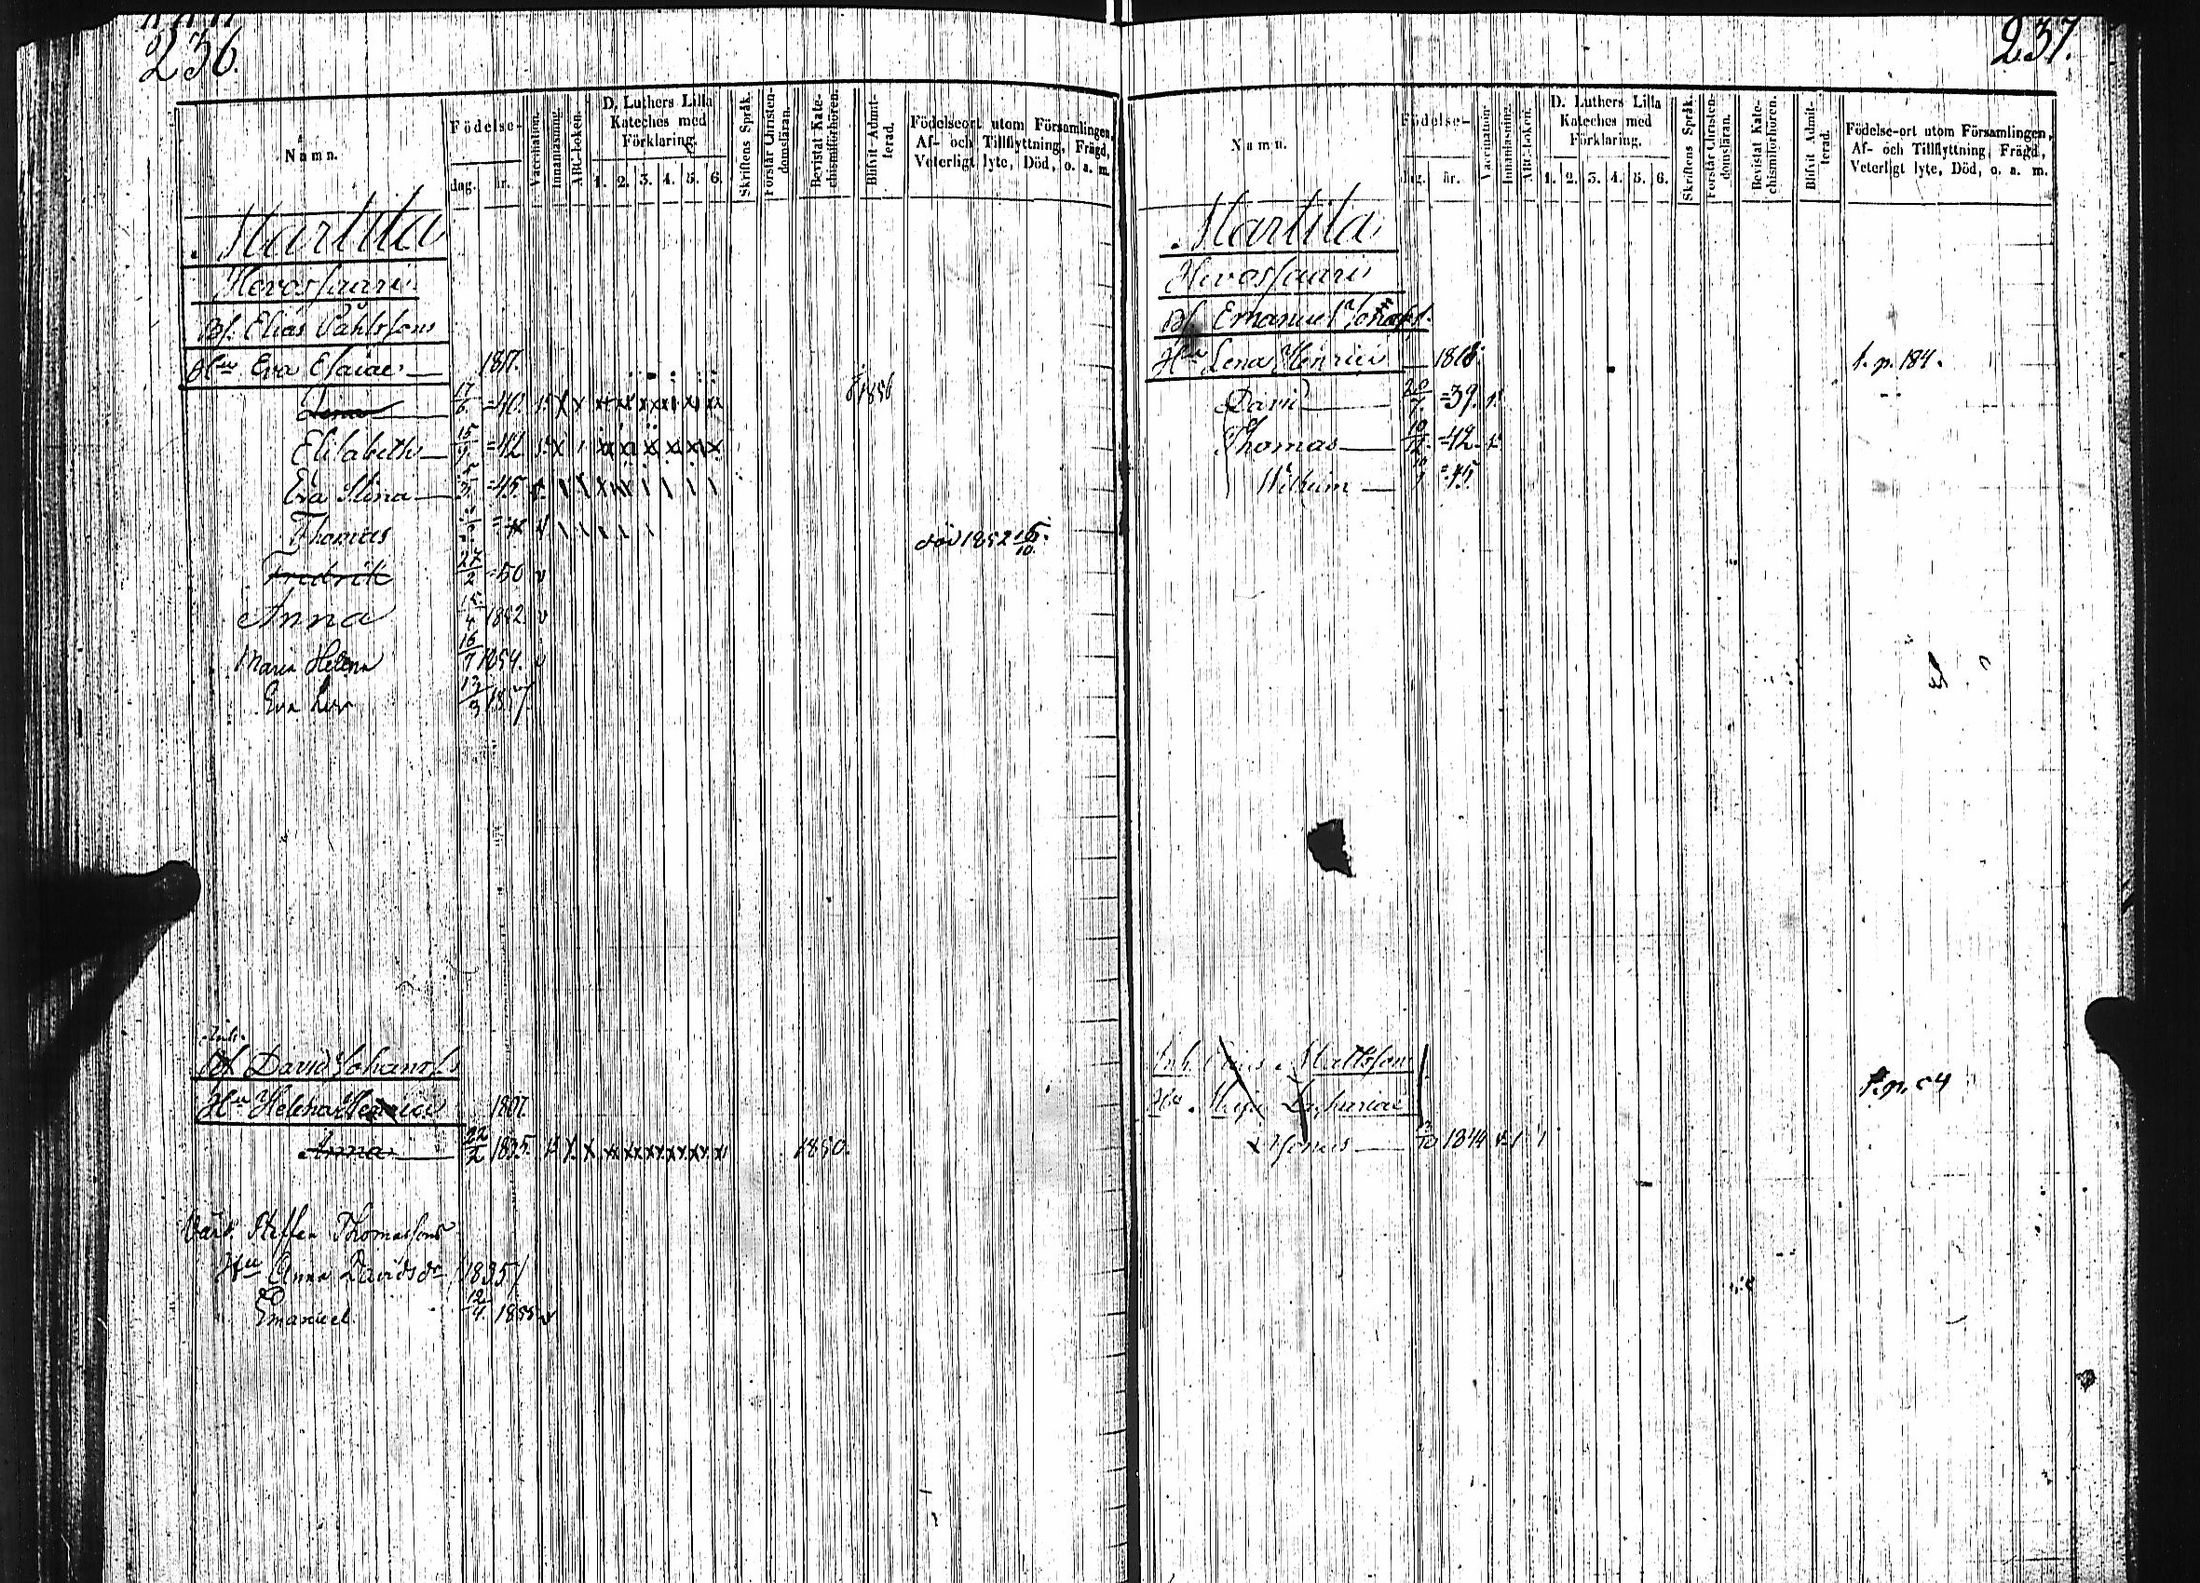 236.
Namn.
Födelse-
dag. år.
Vaccination.
Innanläsning.
ABC-boken.
D. Luthers Lilla
Kateches med
Förklaring.
1. 2. 3. 4. 5. 6.
Skriftens Språk.
Förstår Christen-
domsläran.
Bevistat Kate-
chismiförhören.
Blifvit Admit-
terad.
Födelseort utom Församlingen,
Af- och Tillflyttning, Frägd,
Veterligt lyte, Död, o. a. m.
Martila
Hevossaari
Bf. Elias Påhlssons
Hu Eva Esaiae 1817.
Lena 17/6 =40. 1856
Elisabeth 15/9 =42
Eva Stina =45.
Thomas död 1852 15/10.
Fredrik 27/2 =50 v
Anna 15/4 1852. v
Maria Helena 16/7 1854. v
Eva Lisa 13/9 1857
Bf David Johanss
Hu Helena Henrici 1807.
Anna 22/2 1835. 1850.
Värd. Steffen Thomassons
Hu Anna Davidsdr /1835/
Emanuel 12/4 1855 v
237.
Namn.
Födelse-
dag. år.
Vaccination.
Innanläsning.
ABC-boken.
D. Luthers Lilla
Kateches med
Förklaring.
1. 2. 3. 4. 5. 6.
Skriftens Språk.
Förstår Christen-
domsläran.
Bevistat Kate-
chismiförhören.
Blifvit Admit-
terad.
Födelse-ort utom Församlingen,
Af- och Tillflyttning, Frägd,
Veterligt lyte, Död, o. a. m.
Martila
Hevossaari
Bf. Emanuel
Hu Lena Henrici 1818. f. p. 184.
David 20/7 =39.
Thomas =42.
Wilhelm =45.
Inh. Mattsson
Hu Zachariae
Jonas 1844